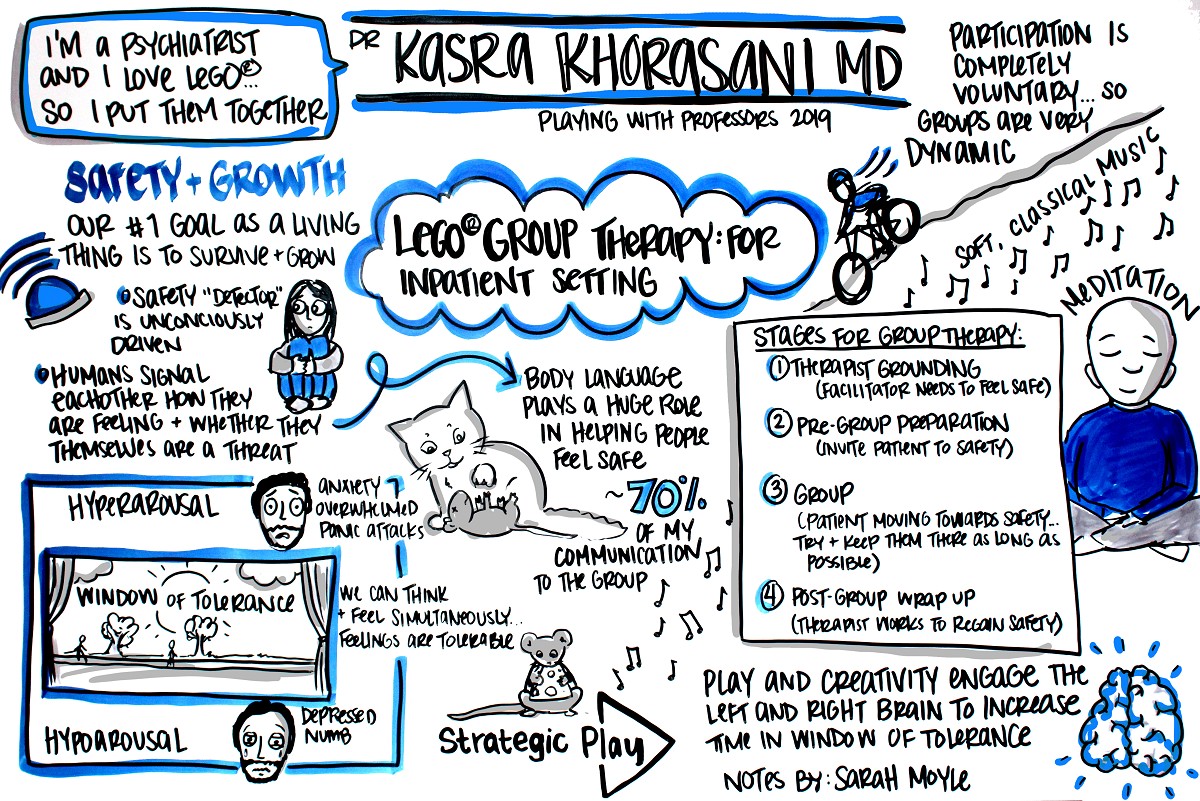 I'M A PSYCHIATRIST
AND I LOVE LEGO®...
SO I PUT THEM TOGETHER
DR KASRA KHORASANI MD
PLAYING WITH PROFESSORS 2019
PARTICIPATION IS
COMPLETELY
VOLUNTARY... SO
GROUPS ARE VERY
DYNAMIC
SAFETY + GROWTH
OUR #1 GOAL AS A LIVING
THING IS TO SURVIVE + GROW
SAFETY "DETECTOR"
IS UNCONCIOUSLY
DRIVEN
HUMANS SIGNAL
EACHOTHER HOW THEY
ARE FEELING + WHETHER THEY
THEMSELVES ARE A THREAT
LEGO® GROUP THERAPY: FOR
INPATIENT SETTING
SOFT, CLASSICAL MUSIC
MEDITATION
BODY LANGUAGE
PLAYS A HUGE ROLE
IN HELPING PEOPLE
FEEL SAFE
~70%
OF MY
COMMUNICATION
TO THE GROUP
STAGES FOR GROUP THERAPY:
1 THERAPIST GROUNDING
(FACILITATOR NEEDS TO FEEL SAFE)
2 PRE-GROUP PREPARATION
(INVITE PATIENT TO SAFETY)
3 GROUP
(PATIENT MOVING TOWARDS SAFETY...
TRY + KEEP THEM THERE AS LONG AS
POSSIBLE)
4 POST-GROUP WRAP UP
(THERAPIST WORKS TO REGAIN SAFETY)
HYPERAROUSAL
ANXIETY
OVERWHELMED
PANIC ATTACKS
WINDOW OF TOLERANCE
WE CAN THINK
+ FEEL SIMULTANEOUSLY...
FEELINGS ARE TOLERABLE
HYPOAROUSAL
DEPRESSED
NUMB
Strategic Play
PLAY AND CREATIVITY ENGAGE THE
LEFT AND RIGHT BRAIN TO INCREASE
TIME IN WINDOW OF TOLERANCE
NOTES BY: SARAH MOYLE